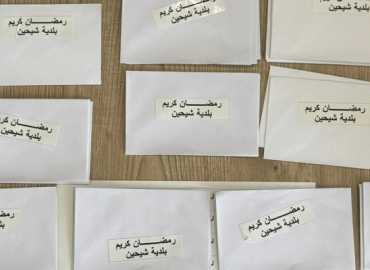 رمضـــان كريم
بلدية شيحين
رمضـــان كريم
بلدية شيحين
بلدية شيحين
رمضـــان كريم
بلدية شيحين
رمضـــان كريم
بلدية شيحين
رمضـــان كريم
بلدية شيحين
رمضـــان كريم
بلدية شيحين
رمضـــان كريم
بلدية شيحين